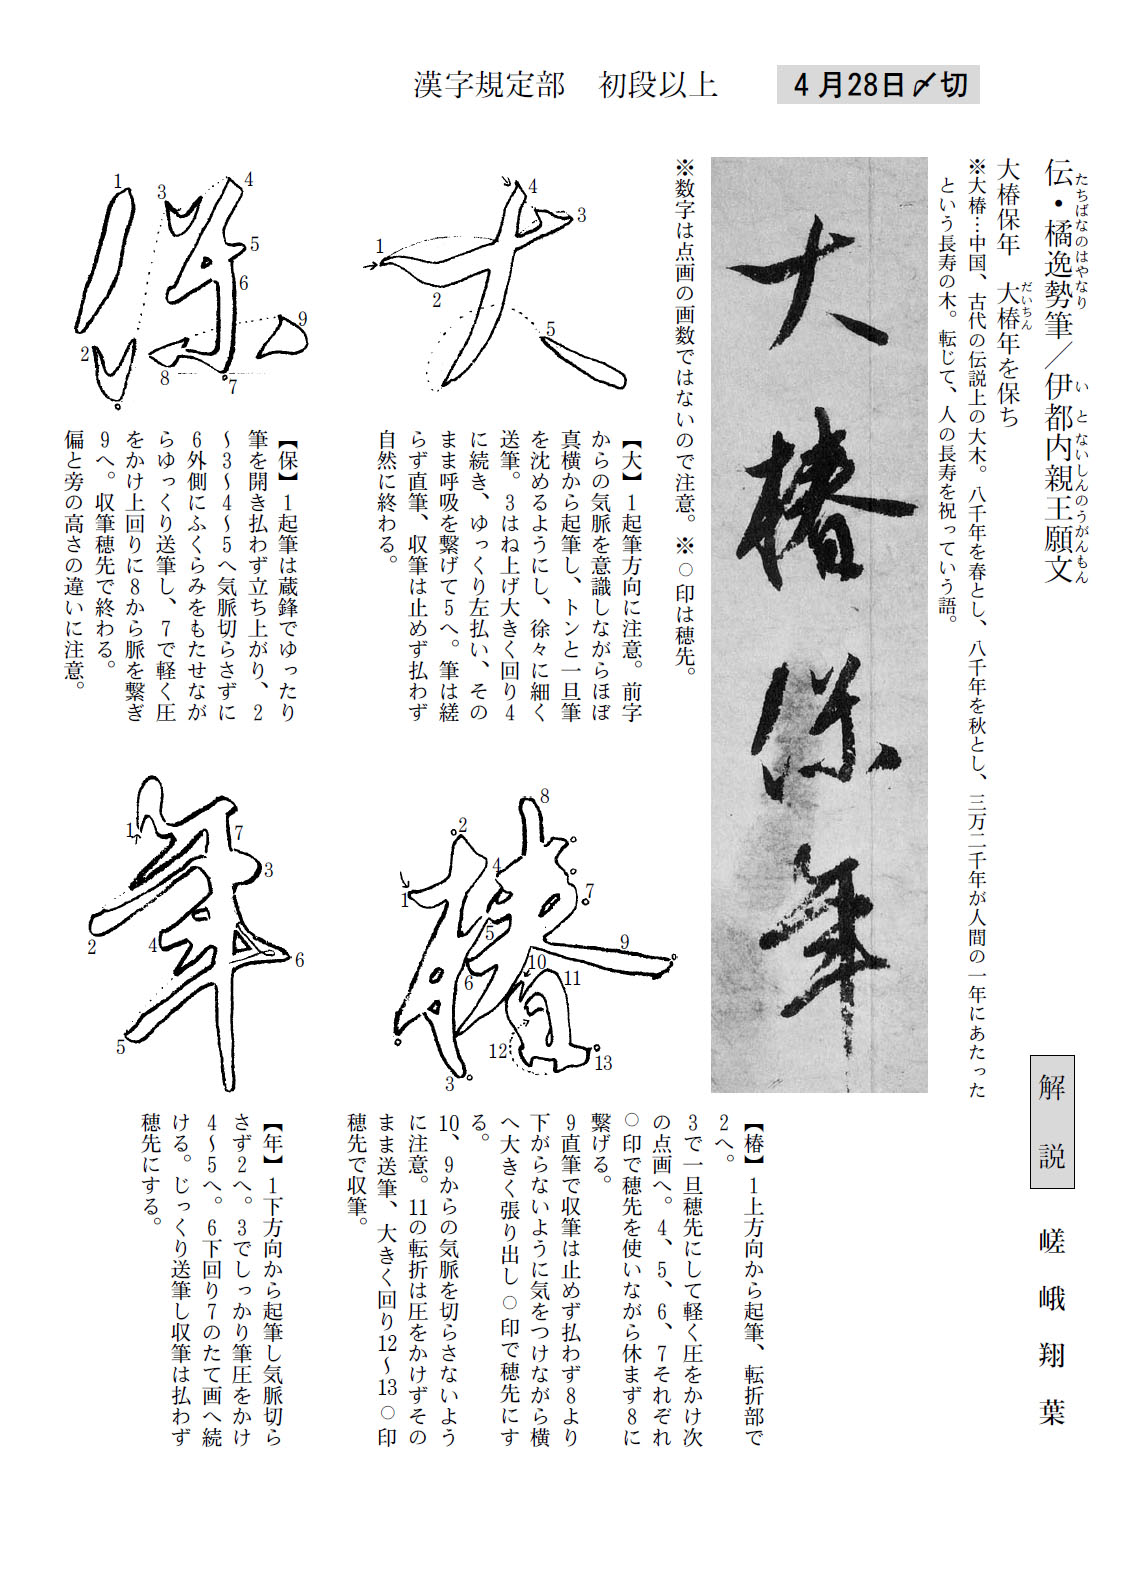 漢字規定部　初段以上
４月28日〆切
伝・橘逸勢筆／伊都内親王願文
たちばなのはやなり
いとないしんのうがんもん
大椿保年　大椿年を保ち
だいちん
※大椿…中国、古代の伝説上の大木。八千年を春とし、八千年を秋とし、三万二千年が人間の一年にあたった
という長寿の木。転じて、人の長寿を祝っていう語。
解説
嵯峨翔葉
大椿保年
※数字は点画の画数ではないので注意。※○印は穂先。
1
2
3
4
5
【大】1起筆方向に注意。前字
からの気脈を意識しながらほぼ
真横から起筆し、トンと一旦筆
を沈めるようにし、徐々に細く
送筆。3はね上げ大きく回り4
に続き、ゆっくり左払い、その
まま呼吸を繋げて5へ。筆は縒
らず直筆、収筆は止めず払わず
自然に終わる。
1
2
3
4
5
6
7
8
9
10
11
12
13
【椿】1上方向から起筆、転折部で
2へ。
3で一旦穂先にして軽く圧をかけ次
の点画へ。4、5、6、7それぞれ
○印で穂先を使いながら休まず8に
繋げる。
9直筆で収筆は止めず払わず8より
下がらないように気をつけながら横
へ大きく張り出し○印で穂先にす
る。
10、9からの気脈を切らさないよう
に注意。11の転折は圧をかけずその
まま送筆、大きく回り12〜13○印
穂先で収筆。
1
2
3
4
5
6
7
8
9
【保】1起筆は蔵鋒でゆったり
筆を開き払わず立ち上がり、2
〜3〜4〜5へ気脈切らさずに
6外側にふくらみをもたせなが
らゆっくり送筆し、7で軽く圧
をかけ上回りに8から脈を繋ぎ
9へ。収筆穂先で終わる。
偏と旁の高さの違いに注意。
1
2
3
4
5
6
7
【年】1下方向から起筆し気脈切ら
さず2へ。3でしっかり筆圧をかけ
4〜5へ。6下回り7のたて画へ続
ける。じっくり送筆し収筆は払わず
穂先にする。